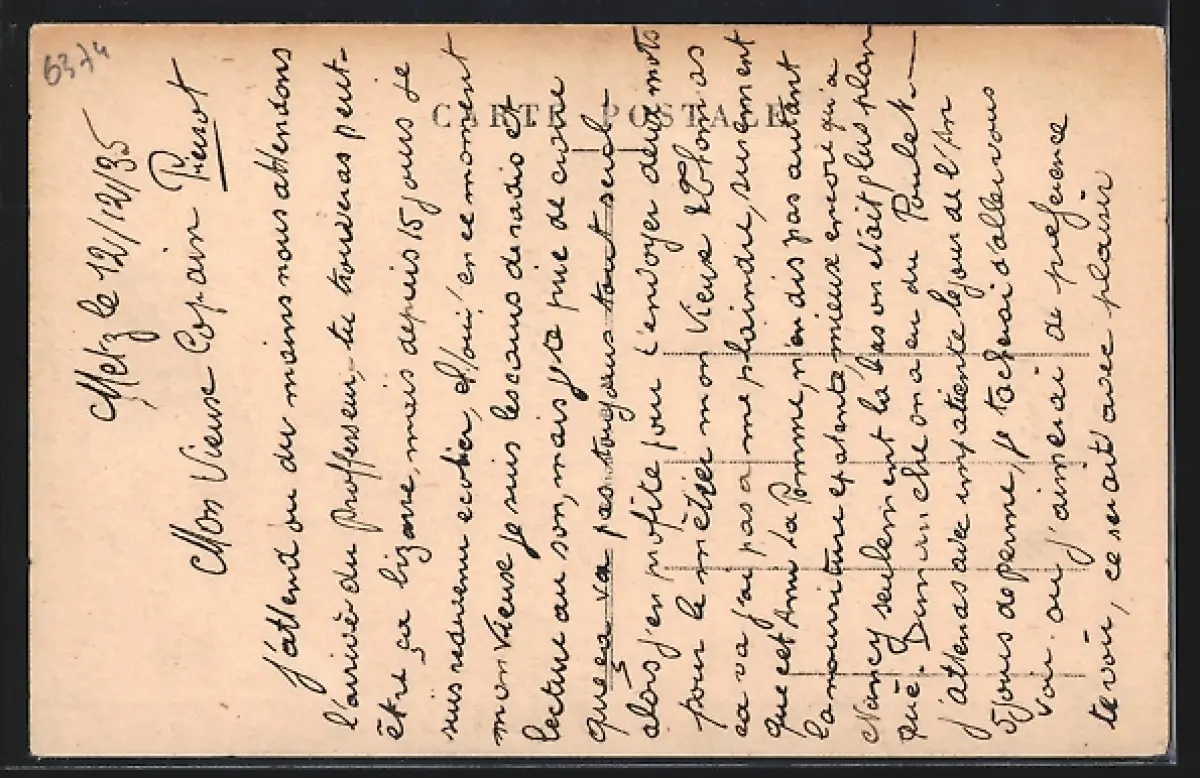 6374
CARTE POSTALE
Metz le 12/12/35
Mon Vieux Copain Pierrot
J'attend ou du moins nous attendons
l'arrivé du professeur, tu trouveras peut-
être ça bizarre, mais depuis 15 jours je
suis redevenu ecolier, eh oui! en ce moment
mon Vieux je suis les cours de radio et
lecture au son, mais je te prie de croire
que ça va pas toujours tout seul
alors j'en profite pour t'envoyer deux mots
pour le métier mon Vieux Thomas
ca va j'ai pas a me plaindre, surement
que cet Anni La Pomme, n'en dis pas autant
la nourriture epatente, mieux encore qu'a
Nancy seulement là bas on etait plus plan
qué. Dimanche on a eu du Poulet —
j'attends avec impatiente le jour de l'An
5 jours de perme, je tacherai d'aller vous
voir ou j'aimerai de preference
te voir, ce serait avec plaisir